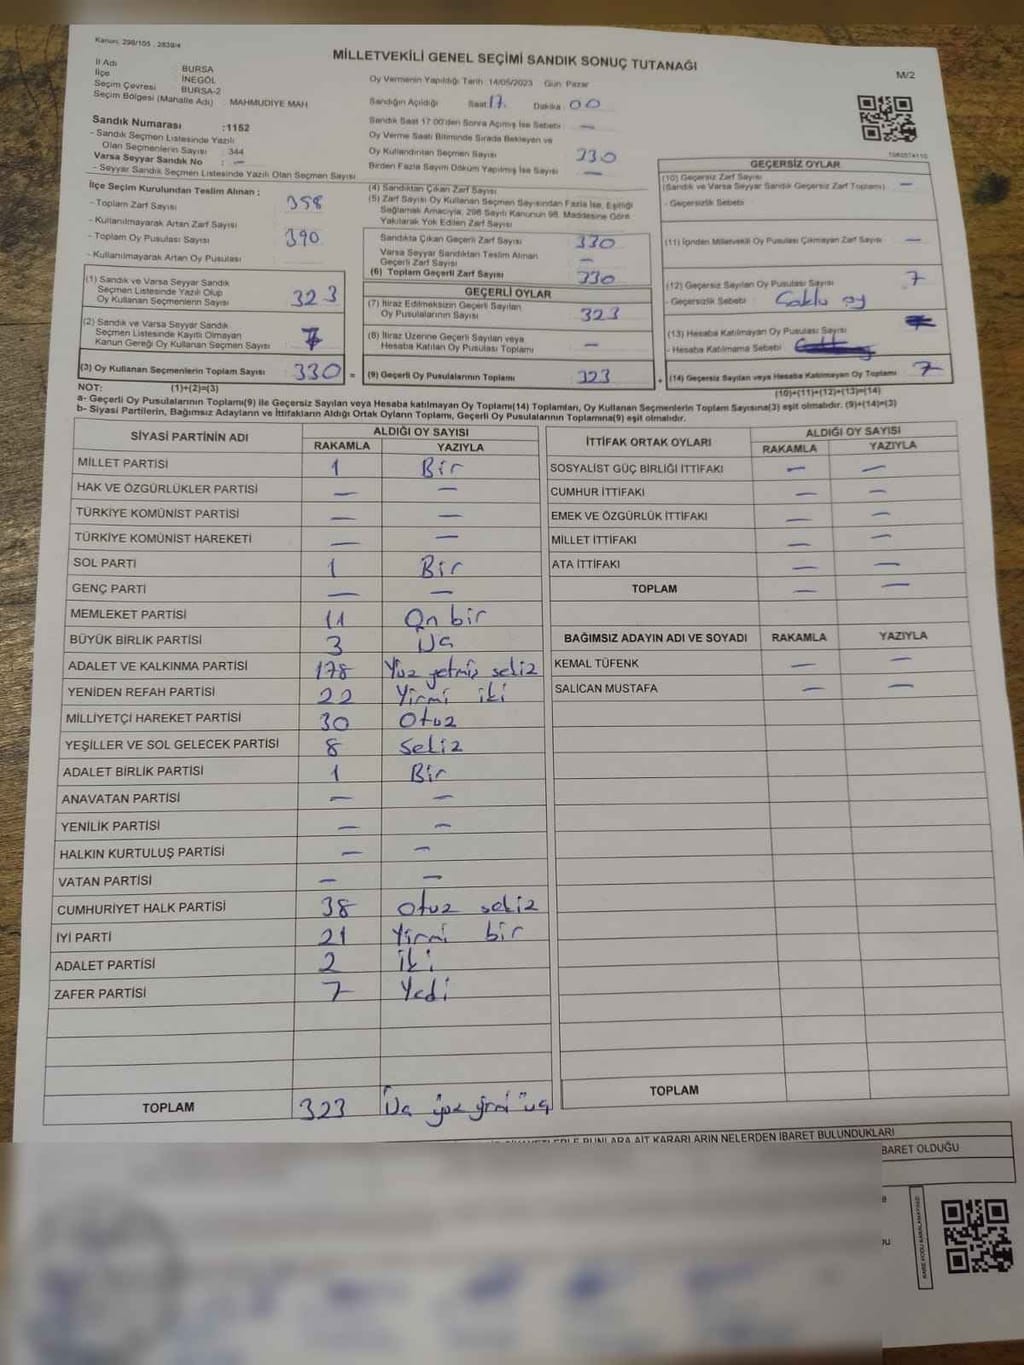 Kanun: 298/105 , 2839/4
MİLLETVEKİLİ GENEL SEÇİMİ SANDIK SONUÇ TUTANAĞI
M/2
İl Adı BURSA
İlçe İNEGÖL
Seçim Çevresi BURSA-2
Seçim Bölgesi (Mahalle Adı) MAHMUDİYE MAH
Oy Vermenin Yapıldığı Tarih :14/05/2023 Gün: Pazar
Sandığın Açıldığı Saat: 17 Dakika: 00
Sandık Saat 17:00'den Sonra Açılmış İse Sebebi : —
Oy Verme Saati Bitiminde Sırada Bekleyen ve
Oy Kullandırılan Seçmen Sayısı 330
Birden Fazla Sayım Döküm Yapılmış İse Sayısı —
Sandık Numarası :1152
- Sandık Seçmen Listesinde Yazılı
Olan Seçmenlerin Sayısı 344
Varsa Seyyar Sandık No : —
- Seyyar Sandık Seçmen Listesinde Yazılı Olan Seçmen Sayısı
İlçe Seçim Kurulundan Teslim Alınan :
- Toplam Zarf Sayısı 358
- Kullanılmayarak Artan Zarf Sayısı
- Toplam Oy Pusulası Sayısı 390
- Kullanılmayarak Artan Oy Pusulası
(1) Sandık ve Varsa Seyyar Sandık
Seçmen Listesinde Yazılı Olup
Oy Kullanan Seçmenlerin Sayısı 323
(2) Sandık ve Varsa Seyyar Sandık
Seçmen Listesinde Kayıtlı Olmayan
Kanun Gereği Oy Kullanan Seçmen Sayısı 7
(3) Oy Kullanan Seçmenlerin Toplam Sayısı 330 =
(4) Sandıktan Çıkan Zarf Sayısı
(5) Zarf Sayısı Oy Kullanan Seçmen Sayısından Fazla İse, Eşitliği
Sağlamak Amacıyla, 298 Sayılı Kanunun 98. Maddesine Göre
Yakılarak Yok Edilen Zarf Sayısı
Sandıkta Çıkan Geçerli Zarf Sayısı 330
Varsa Seyyar Sandıktan Teslim Alınan
Geçerli Zarf Sayısı —
(6) Toplam Geçerli Zarf Sayısı 330
GEÇERLİ OYLAR
(7) İtiraz Edilmeksizin Geçerli Sayılan
Oy Pusulalarının Sayısı 323
(8) İtiraz Üzerine Geçerli Sayılan veya
Hesaba Katılan Oy Pusulası Toplamı —
(9) Geçerli Oy Pusulalarının Toplamı 323 +
GEÇERSİZ OYLAR
(10) Geçersiz Zarf Sayısı
(Sandık ve Varsa Seyyar Sandık Geçersiz Zarf Toplamı) —
- Geçersizlik Sebebi
(11) İçinden Milletvekili Oy Pusulası Çıkmayan Zarf Sayısı —
(12) Geçersiz Sayılan Oy Pusulası Sayısı 7
- Geçersizlik Sebebi : Saklı oy
(13) Hesaba Katılmayan Oy Pusulası Sayısı
- Hesaba Katılmama Sebebi
(14) Geçersiz Sayılan veya Hesaba Katılmayan Oy Toplamı 7
NOT: (1)+(2)=(3) (10)+(11)+(12)+(13)=(14)
a- Geçerli Oy Pusulalarının Toplamı(9) ile Geçersiz Sayılan veya Hesaba katılmayan Oy Toplamı(14) Toplamları, Oy Kullanan Seçmenlerin Toplam Sayısına(3) eşit olmalıdır. (9)+(14)=(3)
b- Siyasi Partilerin, Bağımsız Adayların ve İttifakların Aldığı Ortak Oyların Toplamı, Geçerli Oy Pusulalarının Toplamına(9) eşit olmalıdır.
SİYASİ PARTİNİN ADI ALDIĞI OY SAYISI
RAKAMLA YAZIYLA
MİLLET PARTİSİ 1 Bir
HAK VE ÖZGÜRLÜKLER PARTİSİ — —
TÜRKİYE KOMÜNİST PARTİSİ — —
TÜRKİYE KOMÜNİST HAREKETİ — —
SOL PARTİ 1 Bir
GENÇ PARTİ — —
MEMLEKET PARTİSİ 11 On bir
BÜYÜK BİRLİK PARTİSİ 3 Üç
ADALET VE KALKINMA PARTİSİ 178 Yüz yetmiş sekiz
YENİDEN REFAH PARTİSİ 22 Yirmi iki
MİLLİYETÇİ HAREKET PARTİSİ 30 Otuz
YEŞİLLER VE SOL GELECEK PARTİSİ 8 Sekiz
ADALET BİRLİK PARTİSİ 1 Bir
ANAVATAN PARTİSİ — —
YENİLİK PARTİSİ — —
HALKIN KURTULUŞ PARTİSİ — —
VATAN PARTİSİ — —
CUMHURİYET HALK PARTİSİ 38 Otuz sekiz
İYİ PARTİ 21 Yirmi bir
ADALET PARTİSİ 2 İki
ZAFER PARTİSİ 7 Yedi
TOPLAM 323 Üç yüz yirmi üç
İTTİFAK ORTAK OYLARI ALDIĞI OY SAYISI
RAKAMLA YAZIYLA
SOSYALİST GÜÇ BİRLİĞİ İTTİFAKI — —
CUMHUR İTTİFAKI — —
EMEK VE ÖZGÜRLÜK İTTİFAKI — —
MİLLET İTTİFAKI — —
ATA İTTİFAKI — —
TOPLAM — —
BAĞIMSIZ ADAYIN ADI VE SOYADI RAKAMLA YAZIYLA
KEMAL TÜFENK — —
SALİCAN MUSTAFA — —
TOPLAM
BUNLARA AİT KARARLARIN NELERDEN İBARET BULUNDUKLARI
BARET OLDUĞU